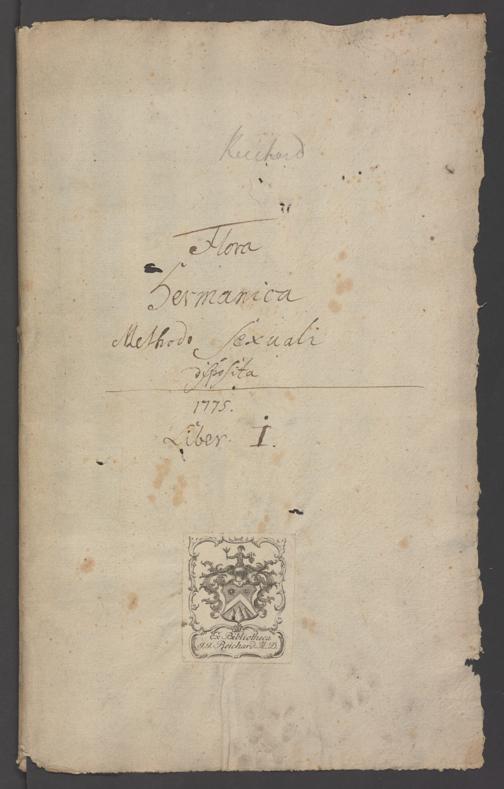 Reichard
Flora
Germanica
Methodo Sexuali
disposita
1775.
Liber I.
Ex Bibliotheca
J. J. Reichard M. D.